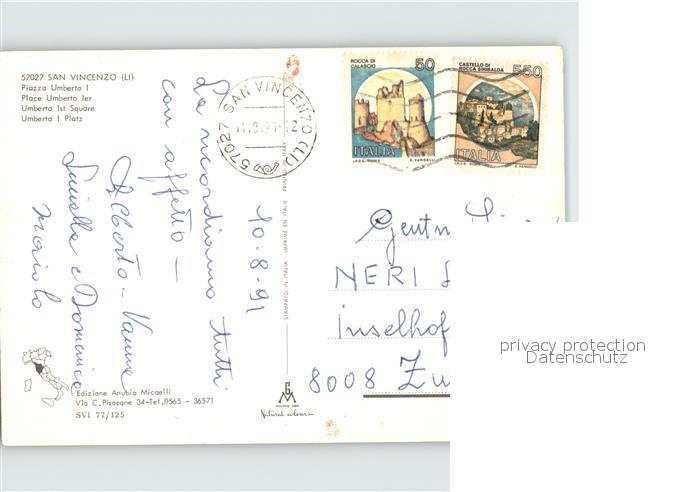 57027 SAN VINCENZO (LI)
Piazza Umberto I
Place Umberto Ier
Umberto Ist Square
Umberto I Platz
57027 SAN VINCENZO (LI)
ROCCA DI
CALASCIO
50
ITALIA
I.P.Z.S. ROMA E. VANGELLI
CASTELLO DI
ROCCA SINIBALDA
550
ITALIA
10.8.91
La ricordiamo tutti
con affetto —
Alberto - Vanna
e Domenico
STAMPATO IN ITALIA IMPRIMÉ EN ITALIE PRINTED IN ITALY
NERI
Inselhof
8008 Zu
privacy protection
Datenschutz
Edizione Anubio Micaelli
Via C. Pisacane 34-Tel,0565 - 36571
SVI 77/125
Natural colours